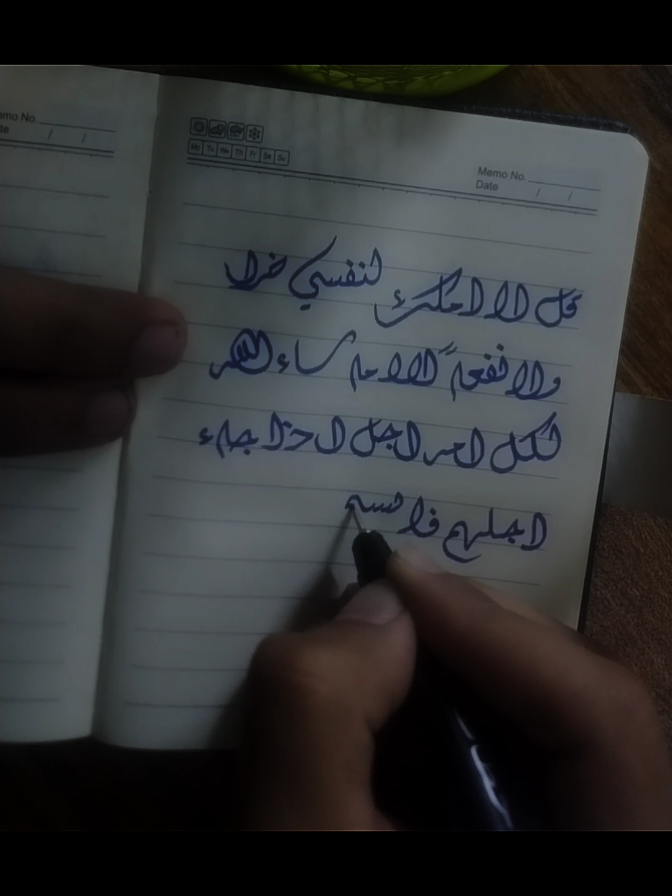 Memo No.
Date / /
Mo Tu We Th Fr Sa Su
emo No.
te / /
قل الا املك لنفسي ضرا
ولا نفعا الا ما شاء الله
لكل امه اجل اذا جاء
اجلهم فلا